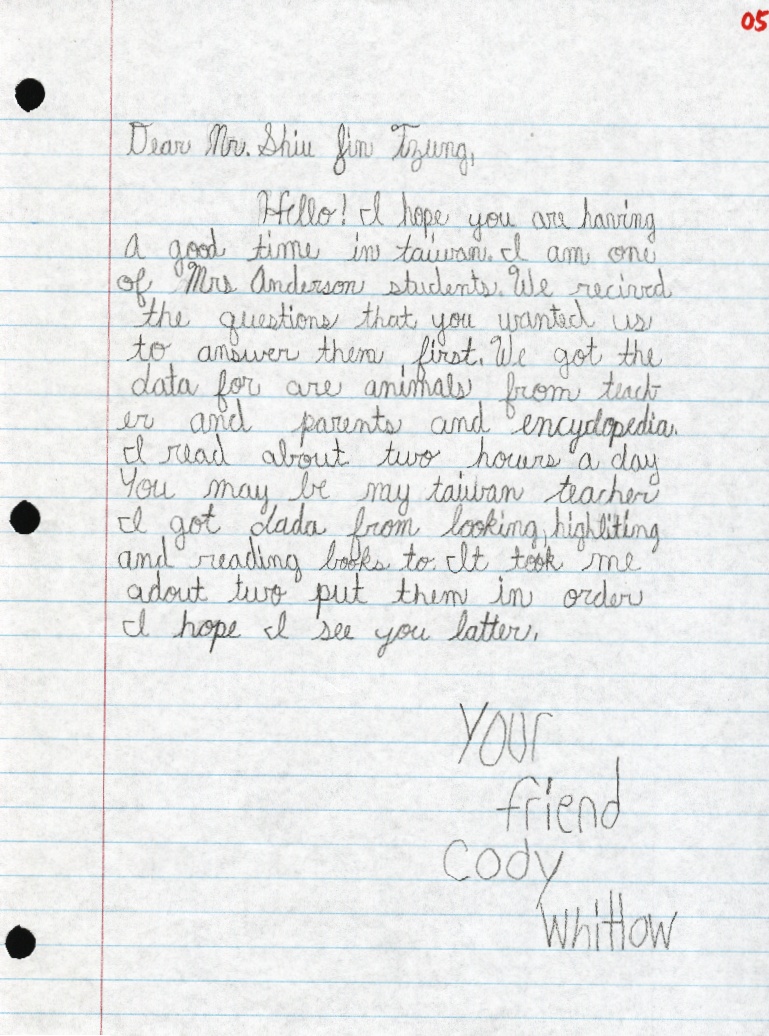 05
Dear Mr. Shiu Jin Tzung,
Hello! I hope you are having
a good time in taiwan. I am one
of Mrs Anderson students. We recived
the questions that you wanted us
to answer them first. We got the
data for are animals from teach
er and parents and encyclopedia.
I read about two hours a day
You may be my taiwan teacher
I got dada from looking, highliting
and reading books to. It took me
adout two put them in order
I hope I see you latter.
Your
friend
Cody
Whittow